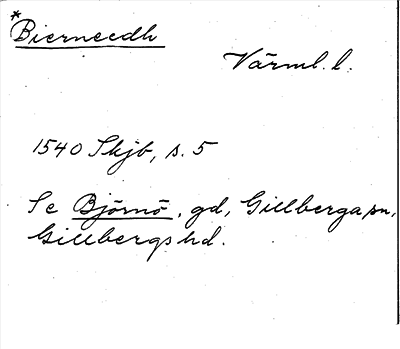 *Bierneedh
Värml. l.
1540 Skjb, s. 5
Se Björnö, gd, Gillberga sn,
Gillbergs hd.